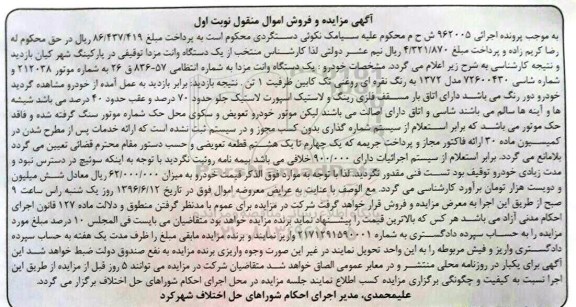 آگهی مزایده و فروش اموال منقول نوبت اول
به موجب پرونده اجرائی ۹۶۲۰۰۵ ش ح م محکوم علیه سیامک نکوئی دستگردی محکوم است به پرداخت مبلغ ۸۶/۴۳۷/۴۱۹ ریال در حق محکوم له
رضا کریم زاده و پرداخت مبلغ ۴/۳۲۱/۸۷۰ ریال نیم عشر دولتی لذا کارشناس منتخب از یک دستگاه وانت مزدا توقیفی در پارکینگ شهر کیان بازدید
و نتیجه کارشناسی به شرح زیر اعلام می گردد. مشخصات خودرو : یک دستگاه وانت مزدا به شماره انتظامی ۵۷-۸۳۶ق ۲۶ به شماره موتور ۲۱۲۰۳۸ و
شماره شاسی ۷۲۶۰۰۴۳۰ مدل ۱۳۷۲ به رنگ نقره ای روغنی تک کابین ظرفیت ۱ تن . نتیجه بازدید: برابر بازدید به عمل آمده از خودرو مشاهده گردید
خودرو دور رنگ می باشد دارای اتاق بار مسقف فلزی رینگ و لاستیک اسپورت لاستیک جلو حدود ۷۰ درصد و عقب حدود ۴۰ درصد می باشد شیشه
ها و آینه ها سالم می باشند شاسی و اتاق دارای اصالت می باشند لیکن موتور خودرو تعویض و سکوی محل حک شماره موتور سنگ گرفته شده و فاقد
حک موتور می باشد که برابر استعلام از سیستم شماره گذاری بدون کسب مجوز و در سیستم ثبت نشده است که ارائه خدمات پس از مطرح شدن در
کمیسیون ماده ۳۰ ارائه فاکتور مجاز و پرداخت جریمه که یک چهارم تا یک هشتم قطعه تعویضی و حسب دستور مقام محترم قضائی تعیین می گردد
بلامانع می گردد. برابر استعلام از سیستم اجرائیات دارای ۹۰۰/۰۰۰ خلافی می باشد بیمه نامه روئیت نگردید با توجه به اینکه سوئیچ در دسترس نبود و
مدت زیادی خودرو توقیف بود تست فنی مقدور نگردید. لذا با توجه به موارد فوق الذکر قیمت خودرو به میزان ۶۲/۰۰۰/۰۰۰ ریال معادل شش میلیون
و دویست هزار تومان برآورد کارشناسی می گردد. مع الوصف با عنایت به عرایض معروضه اموال فوق در تاریخ ۱۳۹۶/۶/۱۲ روز یک شنبه راس ساعت ۹
صبح از طریق این اجرا به معرض مزایده و فروش قرار خواهد گرفت شرکت در مزایده برای عموم با مدنظر گرفتن منطوق و دلالت ماده ۱۲۷ قانون اجرای
احکام مدنی آزاد می باشد هر کس که بالاترین قیمت را پیشنهاد نماید برنده مزایده خواهد بود متقاضیان می بایست فی المجلس ۱۰ درصد مبلغ مورد
مزایده را به حساب سپرده دادگستری به شماره ۲۱۷۱۲۹۱۵۹۰۰۱ واریز نمایند و برنده مزایده مابقی مبلغ را ظرف مدت یک هفته به حساب سپرده
دادگستری واریز و فیش مربوطه را به این واحد تحویل نمایند در غیر این صورت وجوه واریزی برنده مزایده به نفع صندوق دولت ضبط خواهد شد این
آگهی برای یکبار در روزنامه محلی منتشر و در معابر عمومی الصاق خواهد شد متقاضیان شرکت در مزایده می توانند ۵ روز قبل از مزایده از طریق این
اجرا نسبت به کیفیت و چگونگی برگزاری مزایده کسب اطلاع نمایند جلسه مزایده در محل اجرای احکام شوراهای حل اختلاف برگزار می گردد.
علیمحمدی، مدیر اجرای احکام شوراهای حل اختلاف شهرکرد